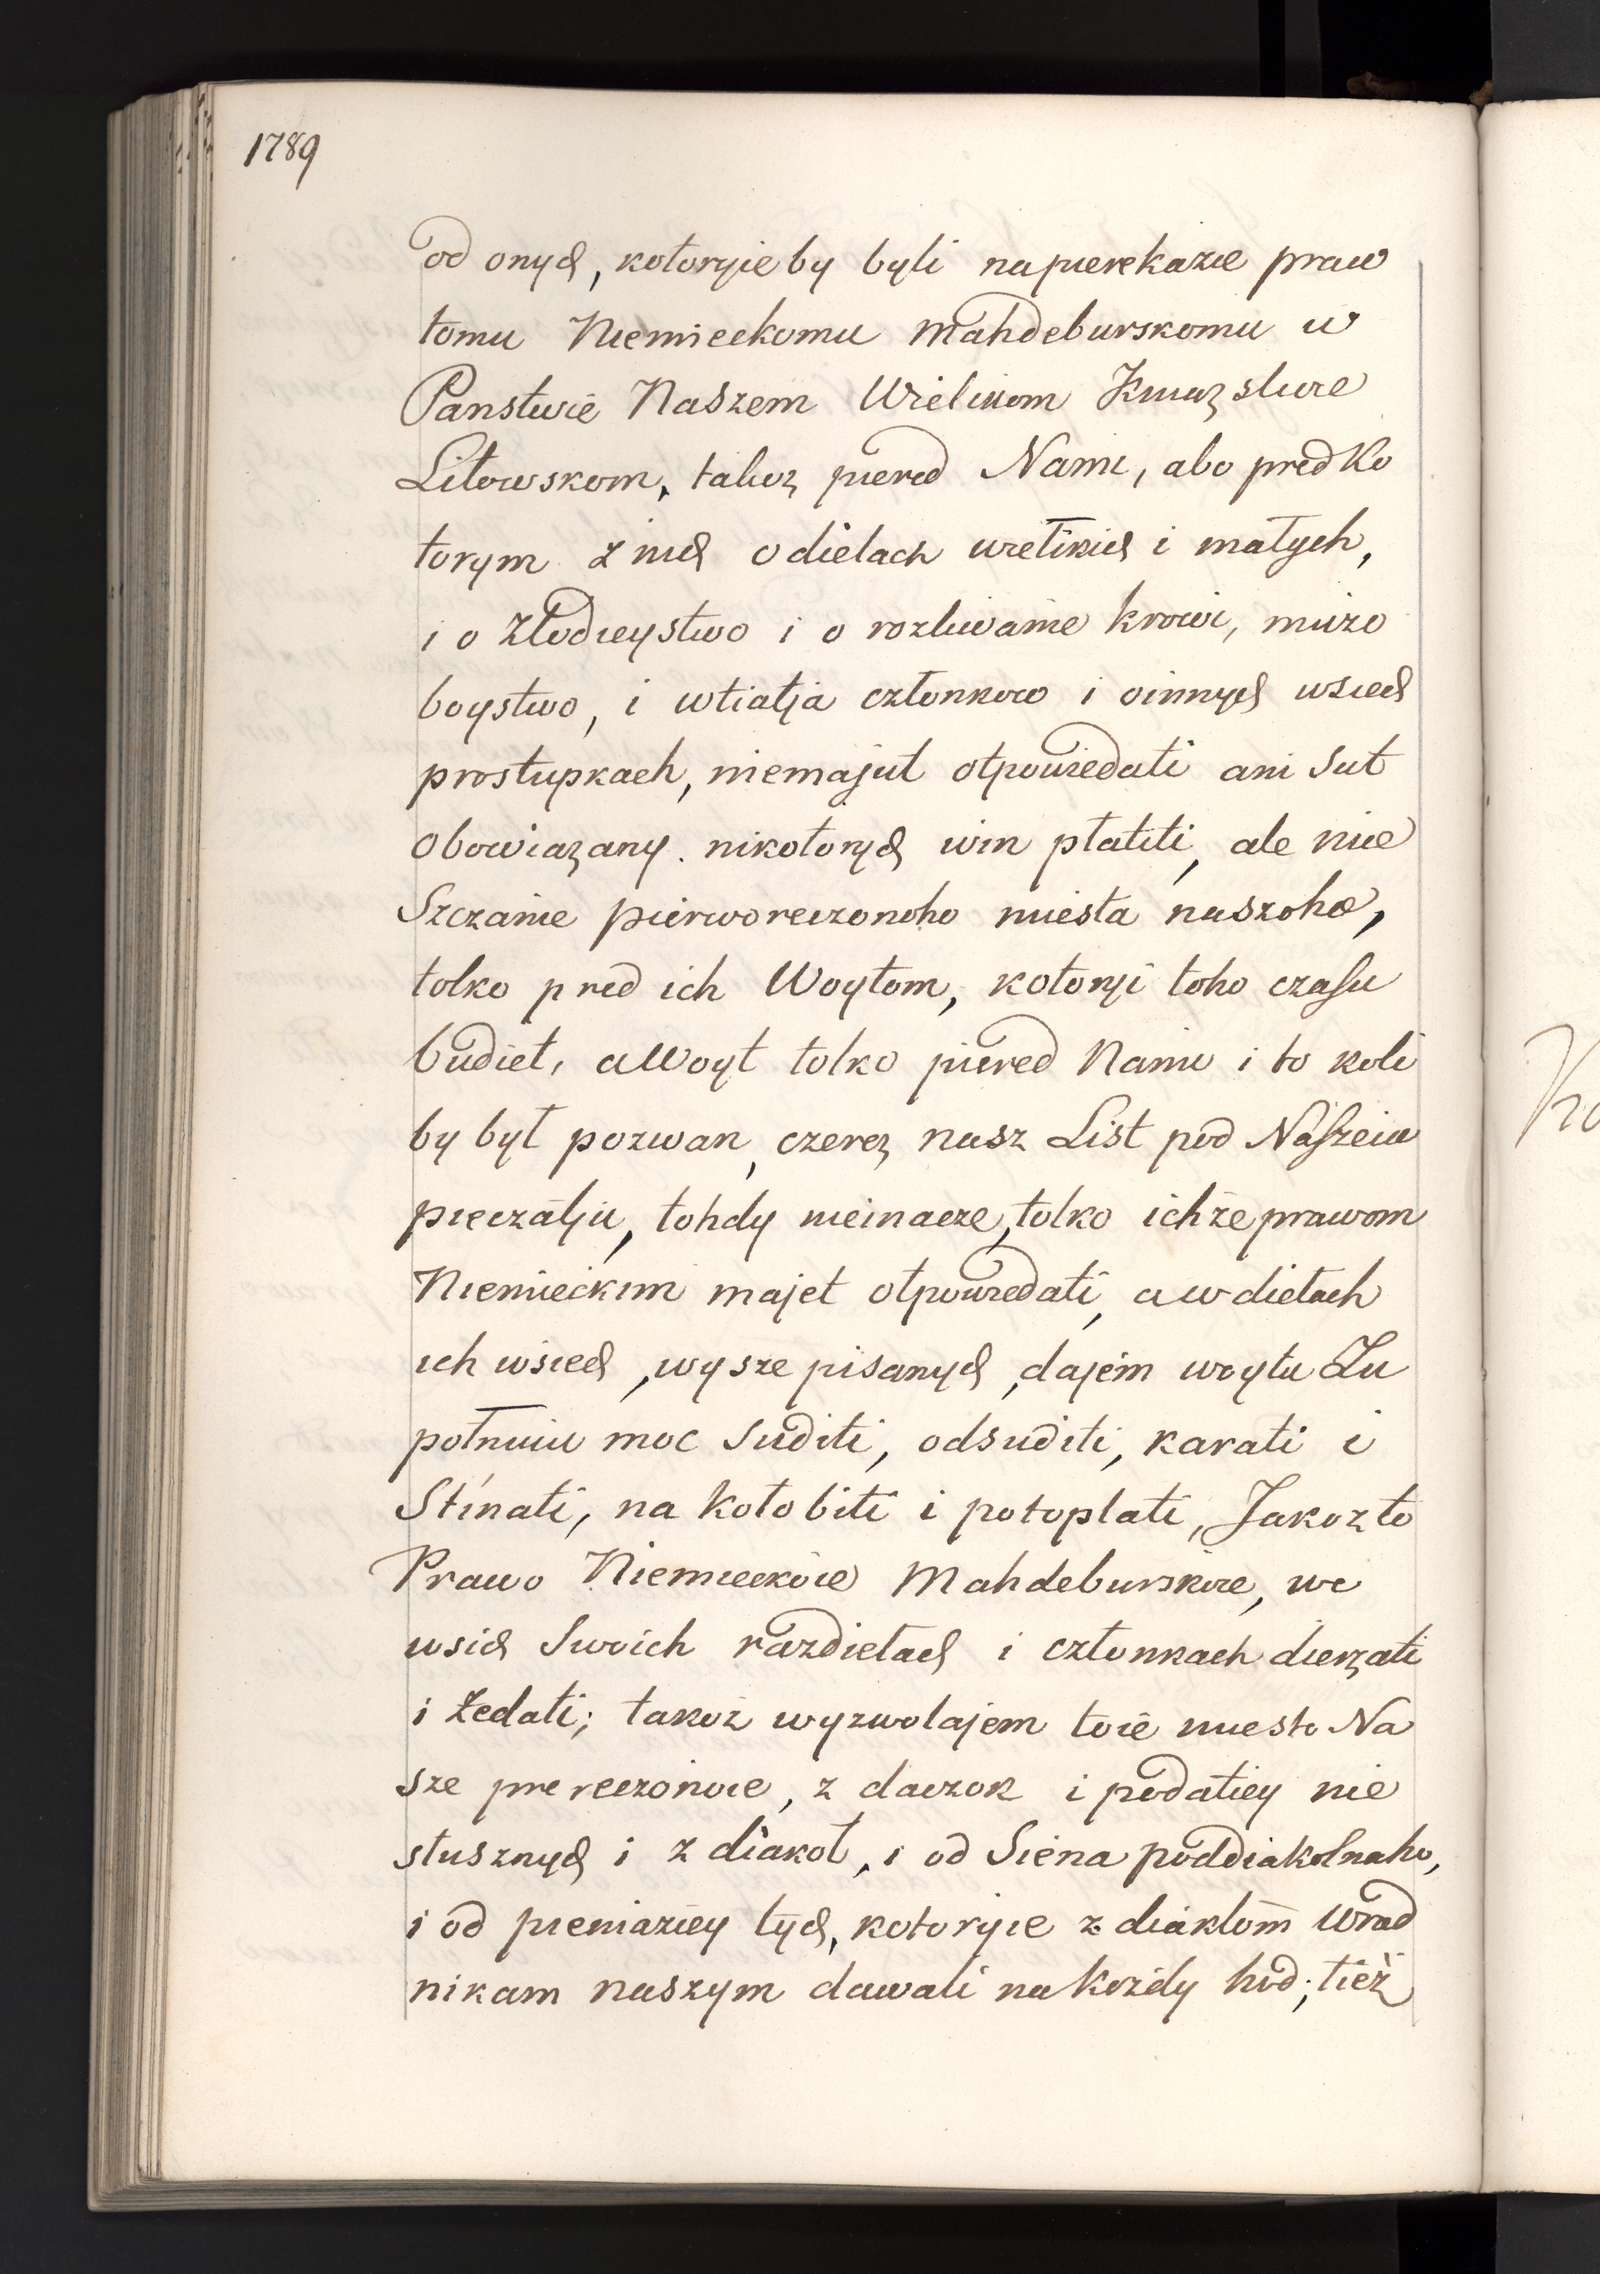 1789
od onych, kotoryie by byli na pierekazie praw
tomu Niemieckomu Mahdeburskomu w
Panstwie Naszem Wielikom Kniaz stwie
Litowskom, takoz piered Nami, abo pred Ko
torym z nich o dielach welikich i małych,
i o Złodieystwo i o rozliwanie krowi, mużo
boystwo, i wtiatja członkow i oinnych wsiech
prostupkach, niemajut otpowiedati ani Sut
Obowiazany nikotorych win płatiti, ale mie
Szczanie pierworeczonoho miesta naszoho,
tolko pred ich Woytom, kotoryi toho czasu
budiet, a Woyt tolko piered Nami i to koli
by był pozwan, czerez nasz List pod Naszeiu
pieczatju, tohdy nieinacze, tolko ichże prawom
Niemieckim majet otpowiedati, a w diełach
ich wsiech, wysze pisanych, dajem woytu Zu
połnuiu moc Suditi, odsuditi, karati i
Stinati, na koło biti i potoplati, Jakozto
Prawo Niemieckoie Mahdeburskoie, we
wsich Swoich razdiełach i członkach dierzati
i Żedati; takoż wyzwolajem toie miesto Na
sze prereczonoie, z daczok i podatiey nie
słusznych i z diakoł, i od Siena poddiakolnaho,
i od pieniaziey tych, kotoryie z diakłom Wrad
nikam naszym dawali na kożdy hod; tież
Ko